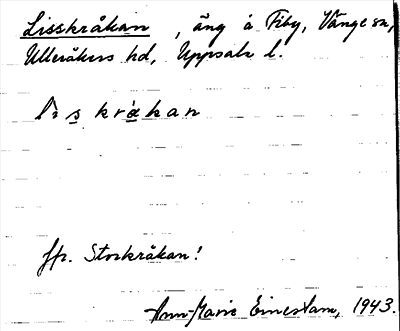 Lisskråkan, äng å Fiby, Vänge sn,
Ulleråkers hd, Uppsala l.
l i s k r å k a n
Jfr. Storkråkan!
Ann-Marie Einestam, 1943.